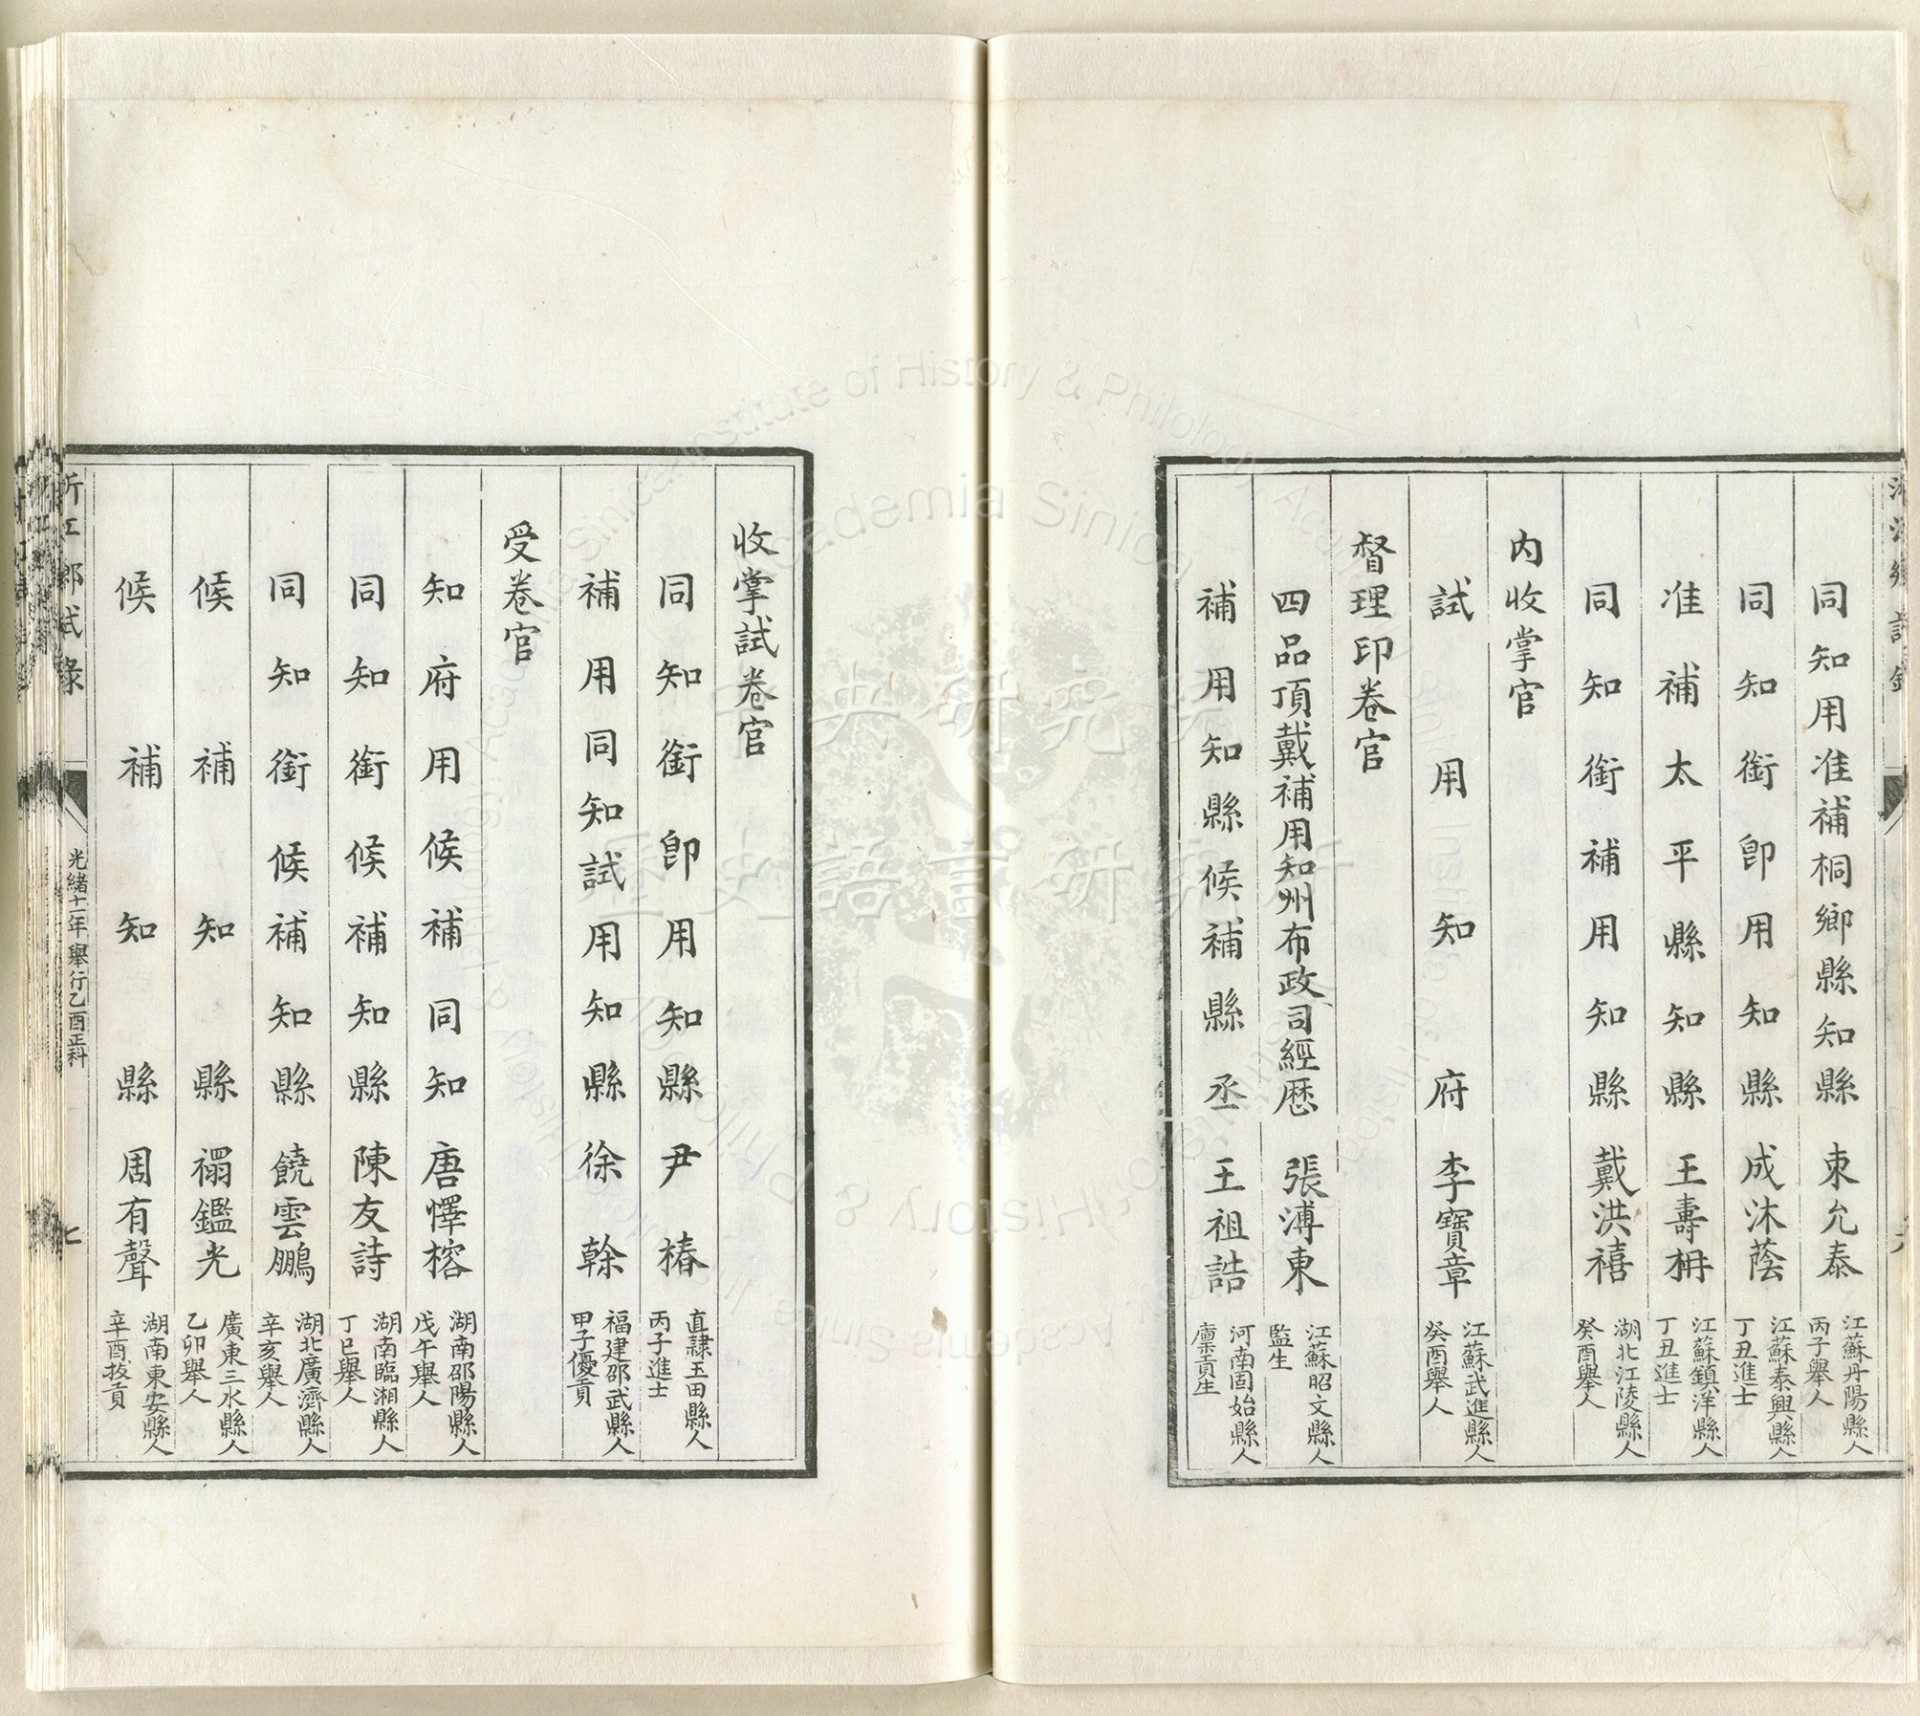 同知用准補桐鄉縣知縣 束允泰 江蘇丹陽縣人 丙子舉人
同知銜卽用知縣 成沐蔭 江蘇泰興縣人 丁丑進士
准補太平縣知縣 王壽枬 江蘇鎮洋縣人 丁丑進士
同知銜補用知縣 戴洪禧 湖北江陵縣人 癸酉舉人
內收掌官
試用知府 李寶章 江蘇武進縣人 癸酉舉人
督理印卷官
四品頂戴補用知州布政司經歷 張溥東 江蘇昭文縣人 監生
補用知縣候補縣丞 王祖誥 河南固始縣人 廩貢生
收掌試卷官
同知銜卽用知縣 尹椿 直隸玉田縣人 丙子進士
補用同知試用知縣 徐榦 福建邵武縣人 甲子優貢
受卷官
知府用候補同知 唐懌榕 湖南邵陽縣人 戊午舉人
同知銜候補知縣 陳友詩 湖南臨湘縣人 丁巳舉人
同知銜候補知縣 饒雲鵬 湖北廣濟縣人 辛亥舉人
候補知縣 禤鑑光 廣東三水縣人 乙卯舉人
候補知縣 周有聲 湖南東安縣人 辛酉拔貢
浙江鄉試錄 光緒十一年舉行乙酉正科 七
中央研究院
歷史語言研究所
Academia Sinica
Institute of History & Philology Academia Sinica